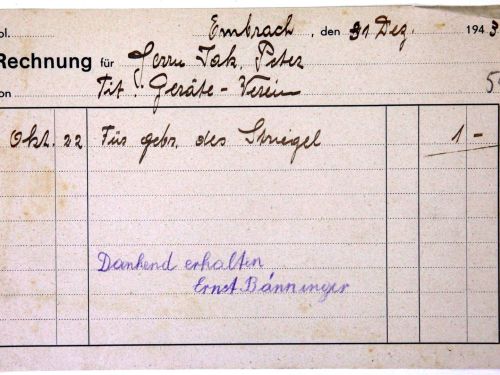 ol.
Embrach, den 31 Dez. 1943
Rechnung für Herrn Jak. Peter
on Tit. Geräte-Verein
Okt. 22 Für gebr. des Striegel 1 -
Dankend erhalten
Ernst Bänninger